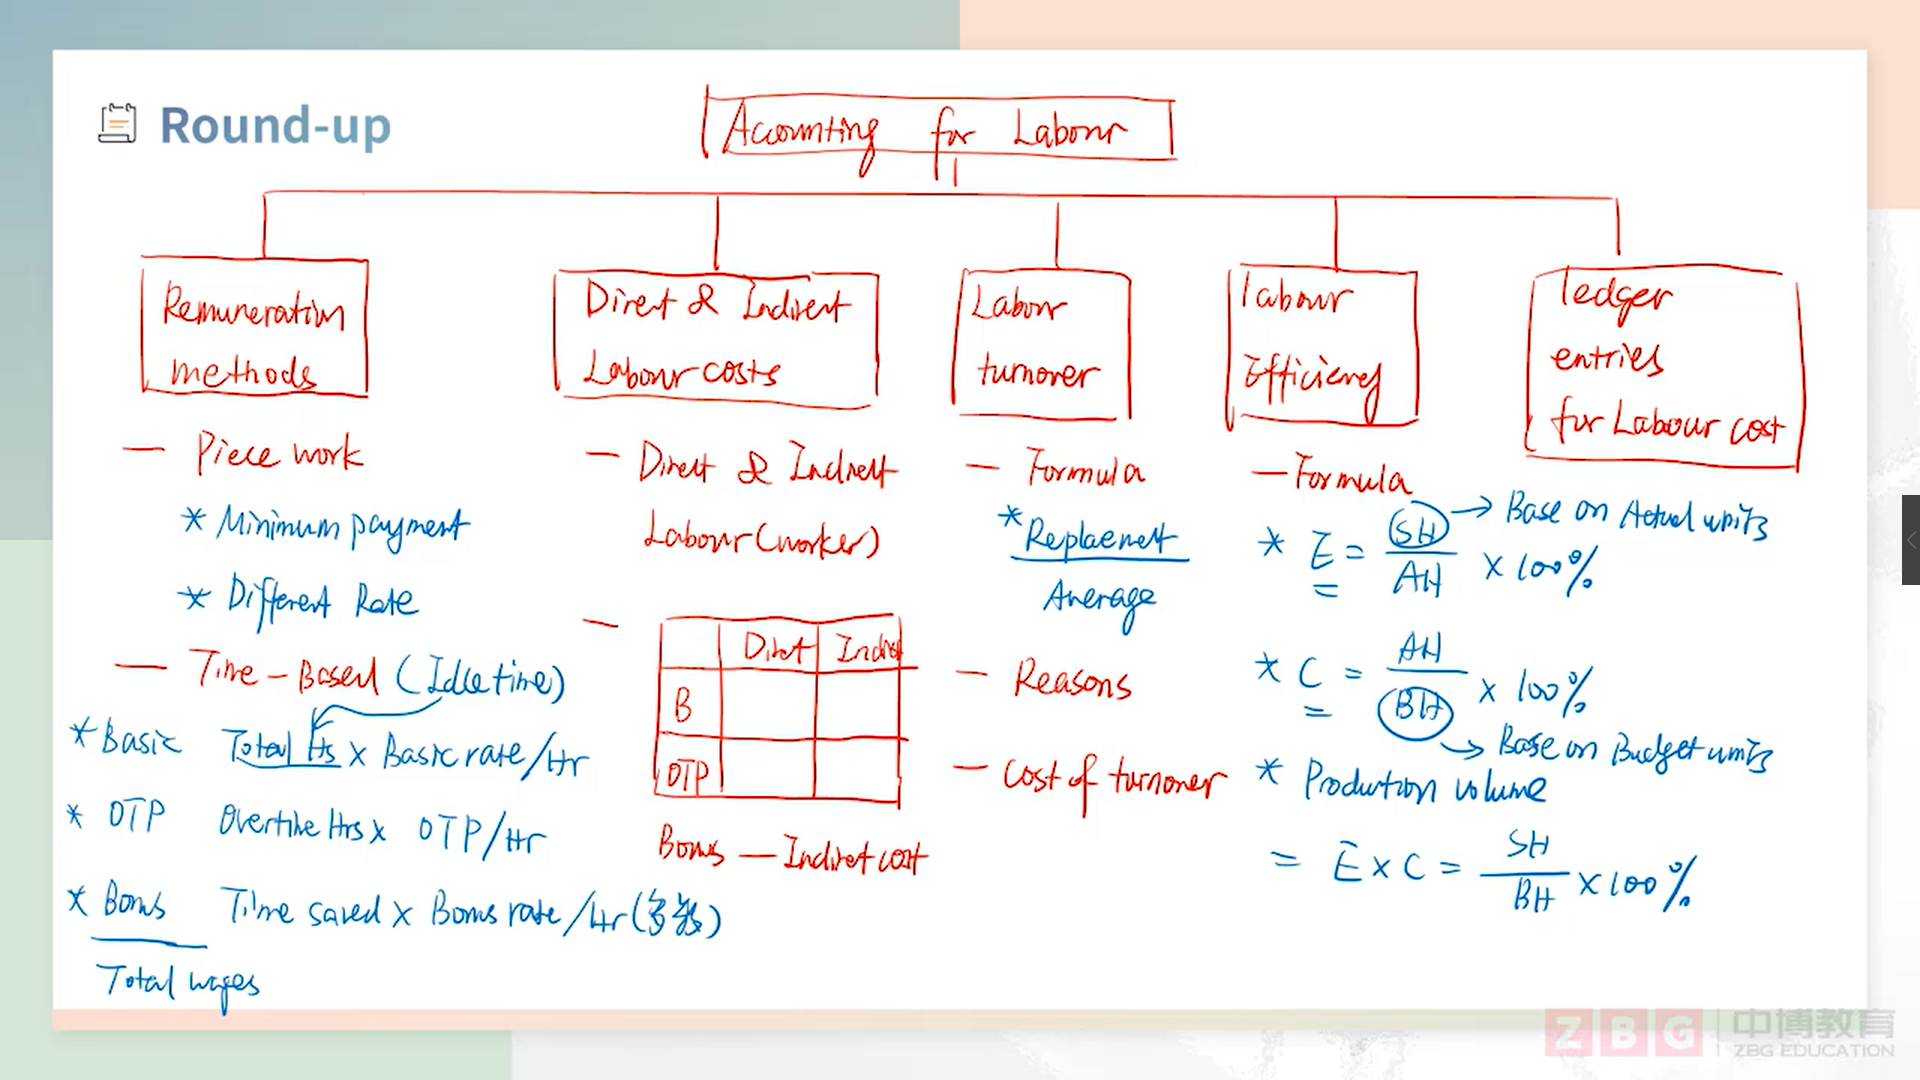 Round-up
Accounting for Labour
Remuneration
methods
Direct & Indirect
Labour costs
Labour
turnover
labour
Efficiency
ledger
entries
for Labour cost
— Piece work
* Minimum payment
* Different Rate
— Time-Based (Idle time)
* Basic Total Hrs × Basic rate/Hr
* OTP Overtime Hrs × OTP/Hr
* Bonus Time saved × Bonus rate/Hr (多数)
Total wages
— Direct & Indirect
Labour (worker)
— Direct Indirect
B
OTP
Bonus — Indirect cost
— Formula
* Replacement
Average
— Reasons
— Cost of turnover
— Formula
* E = SH/AH × 100% → Base on Actual units
* C = AH/BH × 100%
→ Base on Budget units
* Production volume
= E × C = SH/BH × 100%
ZBG 中博教育
ZBG EDUCATION